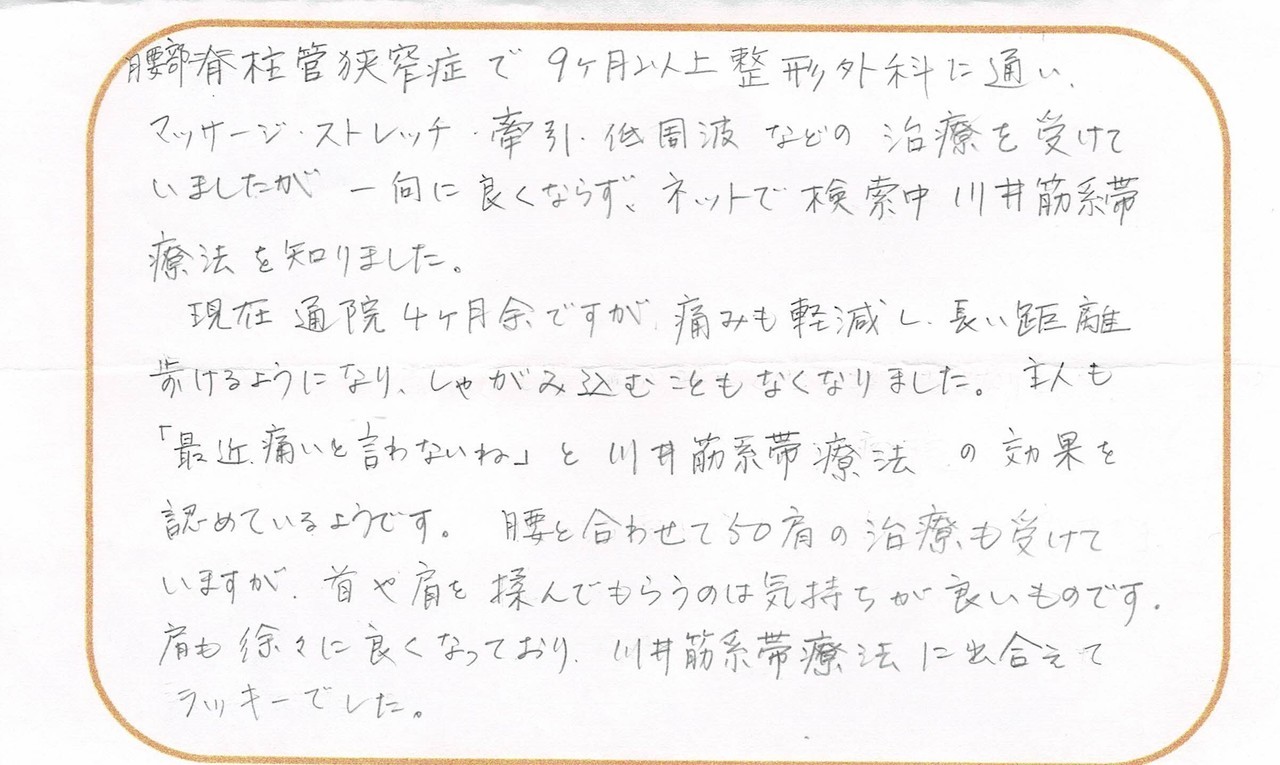 腰部脊柱管狭窄症で9ヶ月以上整形外科に通い、
マッサージ・ストレッチ・牽引・低周波などの治療を受けて
いましたが一向に良くならず、ネットで検索中川井筋系帯
療法を知りました。
現在通院4ヶ月余ですが、痛みも軽減し、長い距離
歩けるようになり、しゃがみ込むこともなくなりました。主人も
「最近、痛いと言わないね」と川井筋系帯療法の効果を
認めているようです。腰と合わせて50肩の治療も受けて
いますが、首や肩を揉んでもらうのは気持ちが良いものです。
肩も徐々に良くなっており、川井筋系帯療法に出合えて
ラッキーでした。